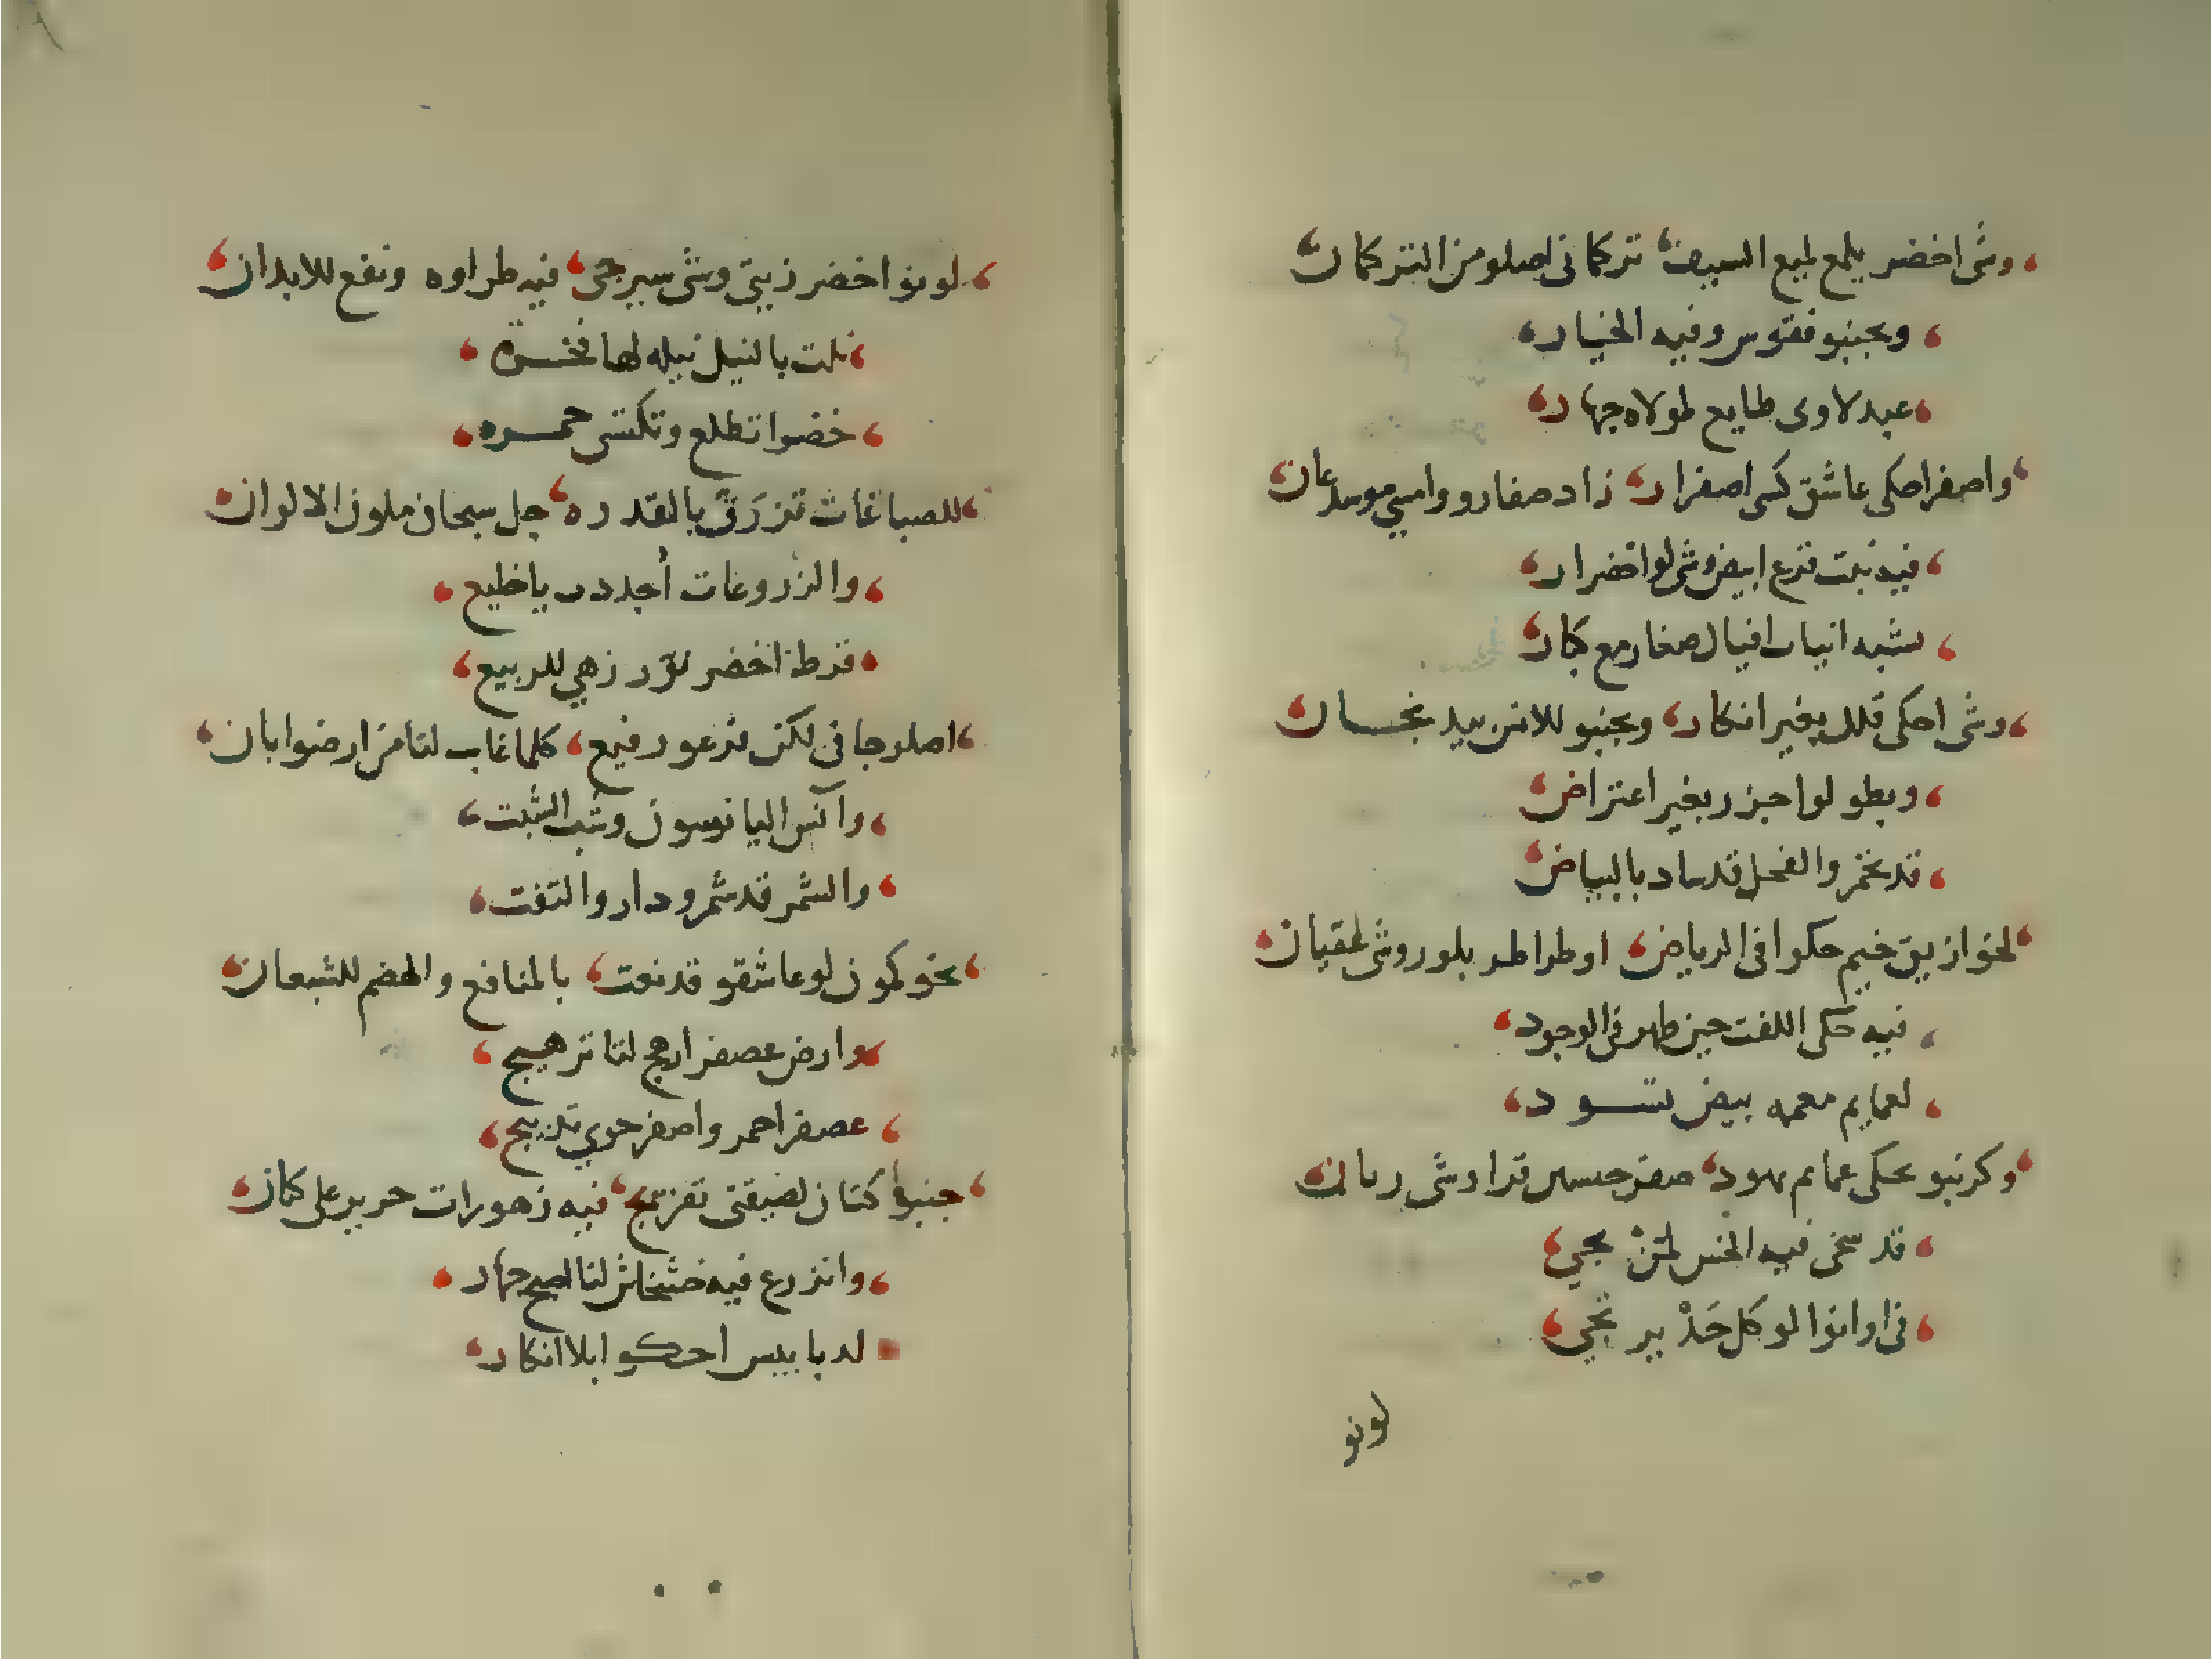 وشى اخضر يلمع لميع السيف تركمانى اصلو من التركمان
وبجنبو فقوس وفيه الخيار
عبدلاوى طايع لمولاه جهار
واصفر احكى عاشق كسى اصفرار زاد صفارو وامسى
فيه نبت قرع ابيض وشى لو اخضرار
شبه انياب افيال صغار مع كبار
وشى احكى قلل بغير انكار وبجنبو للانس
وبطولوا جزر بغير اعتراض
قد والفجل قد ساد بالبياض
خيم حكوا فى الرياض او بلور وشى
فيه حكى اللفت حين ظهر فى الوجود
لعمايم معممه بيض تسود
وكرنبو يحكى عمايم يهود صفر وشى
قد سخى فيه الخس لمن يجى
فى اوانوا لو كل حد ير تجى
لونو
لونو اخضر زيتى وشى سيرجى فيه طراوه ونفع للابدان
نلت بالنيل نيله لها فخره
خضرا تطلع وتكتسى حمره
للصباغات تزرق بالقدره جل سبحان ملون الالوان
والزروعات أجددت ياخليع
قرط اخضر نور زهى للربيع
اصلو جافى لكن فرعو رفيع كلما غاب لنا من ارضوا بان
رآنس اليانسون وشب الشبت
والشمر قد شمر ودار والتفت
نحو كمون لو عاشقو قد نعت بالمنافع والهضم للشبعان
وارض عصفر ارهج لنا ترهيج
عصفر احمر واصفر حوى تدبيج
جنبوا كتان لضيقتى تفريج فيه زهورات حرير على كتان
وانزرع فيه خشخاش لنا اصبح جهار
لدبابيس احكوا بلا انكار